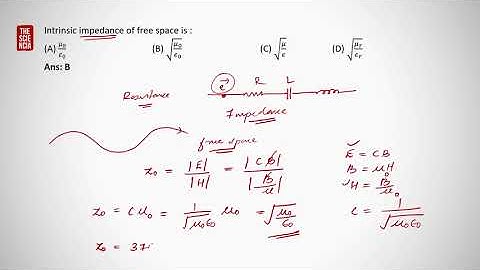 THE
SCIE
NCIA
Intrinsic impedance of free space is :
(A) μ₀/ε₀ (B) √(μ₀/ε₀) (C) √(μ/ε) (D) √(μᵣ/εᵣ)
Ans: B
e⁻ R L
Resistance
Impedance
free space
z₀ = |E|/|H| = |CB|/|B/μ|
E = CB
B = μH
H = B/μ₀
z₀ = C μ₀ = 1/√(μ₀ε₀) μ₀ = √(μ₀/ε₀)
C = 1/√(μ₀ε₀)
z₀ = 37